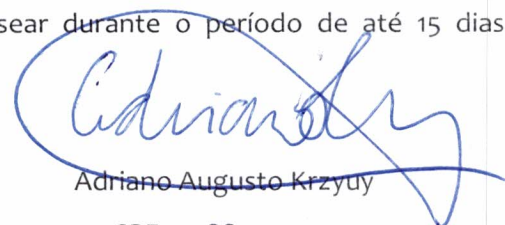 sear durante o período de até 15 dias
Adriano Augusto Krzyuy